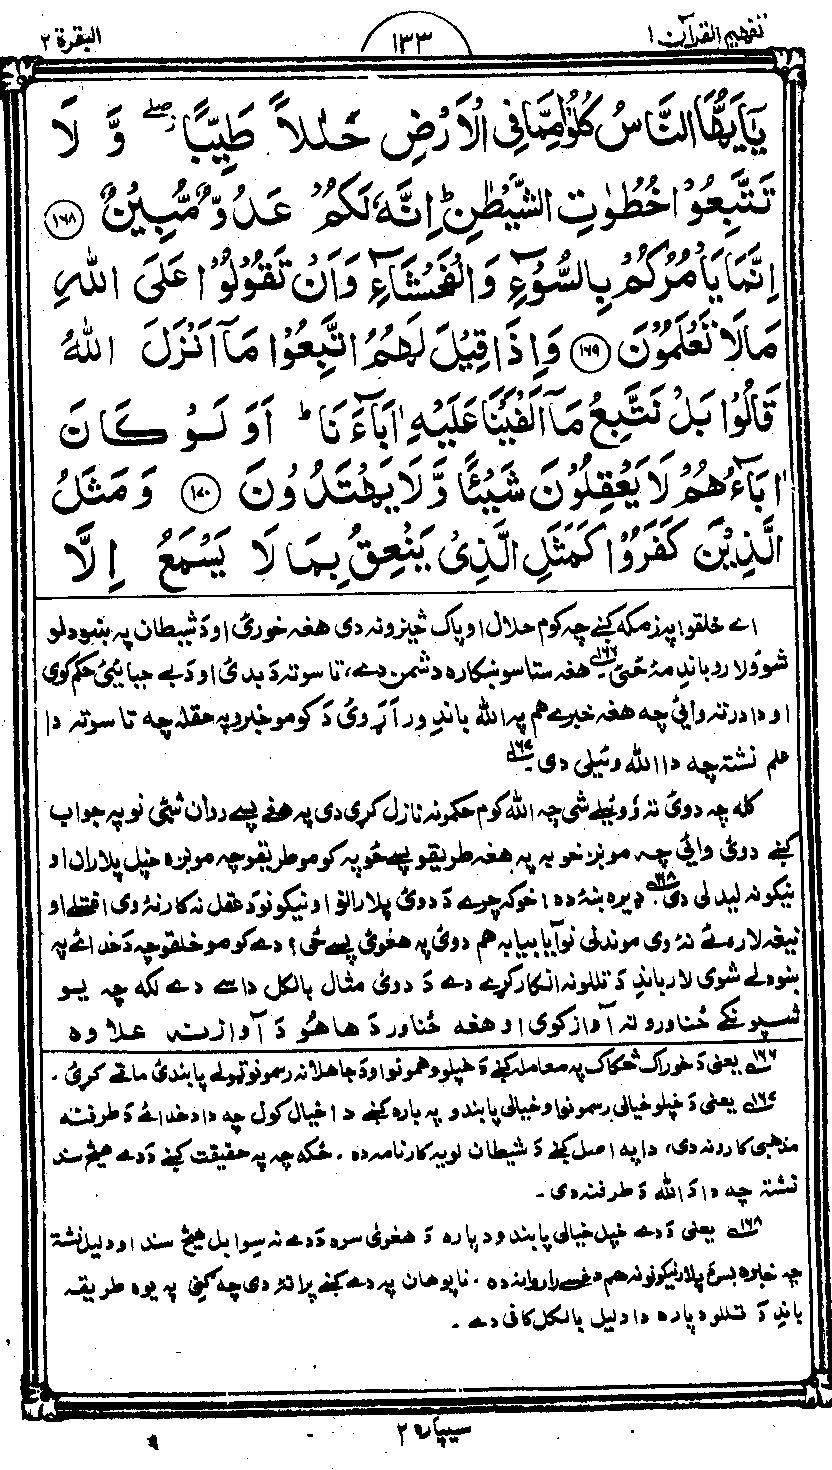 تفهيم القرآن ١
١٣٣
البقرة ٢
يٰۤاَيُّهَا النَّاسُ كُلُوْا مِمَّا فِى الْاَرْضِ حَلٰلًا طَيِّبًا ۖ وَّ لَا
تَتَّبِعُوْا خُطُوٰتِ الشَّيْطٰنِ ؕ اِنَّهٗ لَكُمْ عَدُوٌّ مُّبِيْنٌ ١٦٨
اِنَّمَا يَاْمُرُكُمْ بِالسُّوْٓءِ وَالْفَحْشَآءِ وَاَنْ تَقُوْلُوْا عَلَى اللهِ
مَا لَا تَعْلَمُوْنَ ١٦٩ وَاِذَا قِيْلَ لَهُمُ اتَّبِعُوْا مَآ اَنْزَلَ اللهُ
قَالُوْا بَلْ نَتَّبِعُ مَآ اَلْفَيْنَا عَلَيْهِ اٰبَآءَنَا ؕ اَوَ لَوْ كَانَ
اٰبَآؤُهُمْ لَا يَعْقِلُوْنَ شَيْئًا وَّ لَا يَهْتَدُوْنَ ١٧٠ وَ مَثَلُ
الَّذِيْنَ كَفَرُوْا كَمَثَلِ الَّذِىْ يَنْعِقُ بِمَا لَا يَسْمَعُ اِلَّا
اے خلقو! په زمکه کښے چه کوم حلال او پاک څيزونه دى هغه خورئ او د شيطان په ښودلو
شوو لارو باندِ مۀ ځئ ١٦٦ هغه ستاسو ښکاره دشمن دے، تاسو ته د بدئ او د بے حيايئ حکم کوى
او دا درته وائى چه هغه خبرے هم په الله باندِ ور اړوئ د کومو خبرو په حقله چه تاسو ته دا
علم نشته چه دا الله وئيلى دى ١٦٧
کله چه دوئ ته وُوئيلے شى چه الله کوم حکمونه نازل کړى دى په هغے پسے روان شئ نو په جواب
کښے دوئ وائى چه مونږ خو به په هغه طريقو پسے ځو په کومو طريقو چه مونږه خپل پلاران او
نيکونه ليدلى دى ١٦٨ ډيره ښه ده! خو که چرے د دوئ پلارانو او نيکونو د عقل نه کار نۀ وى اخستے او
نيغه لار ئے نۀ وى موندلى نو آيا بيا به هم دوئ په هغوئ پسے ځى؟ د کومو خلقو چه د خدائے په
ښودلے شوى لار باندِ د تللو نه انکار کړے دے د دوئ مثال بالکل داسے دے لکه چه يو
شپونکے ځناورو ته آواز کوى او هغه ځناور د ها هُو د آواز نه علاوه
١٦٦ يعنى د خوراک څکاک په معامله کښے د خپلو وهمونو او د جاهلانه رسمونو ټولے پابندئ ماتے کړئ.
١٦٧ يعنى د خپلو خيالى رسمونو او خيالى پابندو په باره کښے دا خيال کول چه دا د خدائے د طرفنه
مذهبى کارونه دى، دا په اصل کښے د شيطان لويه کارنامه ده. ځکه چه په حقيقت کښے د دے هيڅ سند
نشته چه دا د الله د طرفنه دى.
١٦٨ يعنى د دے خپل خيالى پابندو دپاره د هغوئ سره د دے نه سِوا بل هيڅ سند او دليل نشته
چه نيکونو نه هم دغسے را روانه ده. ناپوهان په دے کښے پراتۀ دى چه په يوه طريقه
باندِ د تللو دپاره دا دليل بالکل کافى دے.
سيپاره ٢